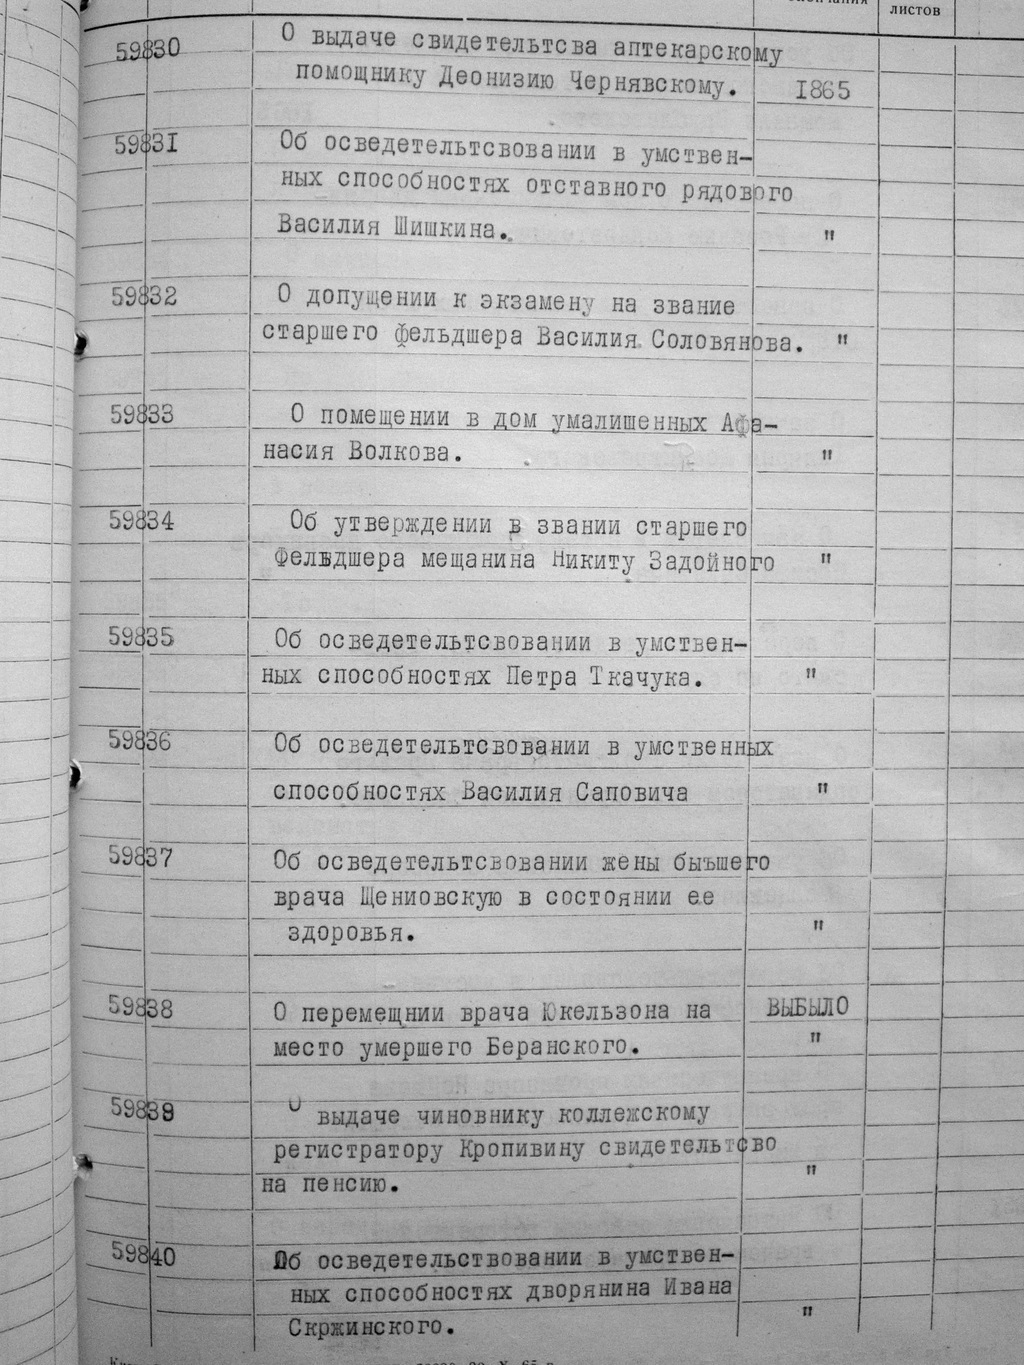 листов
59830 О выдаче свидетельтсва аптекарскому
помощнику Деонизию Чернявскому. 1865
59831 Об осведетельтсвовании в умствен-
ных способностях отставного рядового
Василия Шишкина. "
59832 О допущении к экзамену на звание
старшего фельдшера Василия Соловянова. "
59833 О помещении в дом умалишенных Афа-
насия Волкова. "
59834 Об утверждении в звании старшего
Фельдшера мещанина Никиту Задойного "
59835 Об осведетельтсвовании в умствен-
ных способностях Петра Ткачука. "
59836 Об осведетельтсвовании в умственных
способностях Василия Саповича "
59837 Об осведетельтсвовании жены бывшего
врача Щениовскую в состоянии ее
здоровья. "
59838 О перемещнии врача Юкельзона на ВЫБЫЛО
место умершего Беранского. "
59839 О выдаче чиновнику коллежскому
регистратору Кропивину свидетельтсво
на пенсию. "
59840 Об осведетельствовании в умствен-
ных способностях дворянина Ивана
Скржинского. "